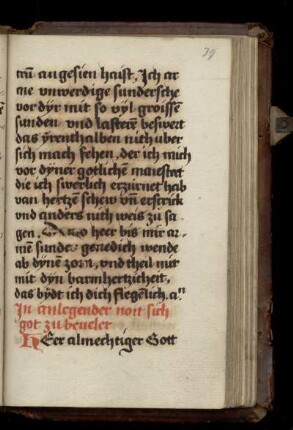 39
trü an gesien haist, Ich ar
me vnwerdige sundersche
vor dÿr mit so vÿl groissē
sunden vnd lasterē beswert
das ÿrenthalben nith über
sich mach sehen, der ich mich
vor dÿner gotlichē maiestat
die ich swerlich erzürnet heb
van hertzē schew vn̄ erschrick
vnd anders nith weis zu sa
gen. Also heer bis mir ar
mē sunde genedich wende
ab dÿnē zorn, vnd theil mit
mit dÿn barmhertzicheit,
das bÿdt ich dich flegēlich. aⁿ
In anlegender noit sich
got zu beuelet
HEer almechtiger Gott